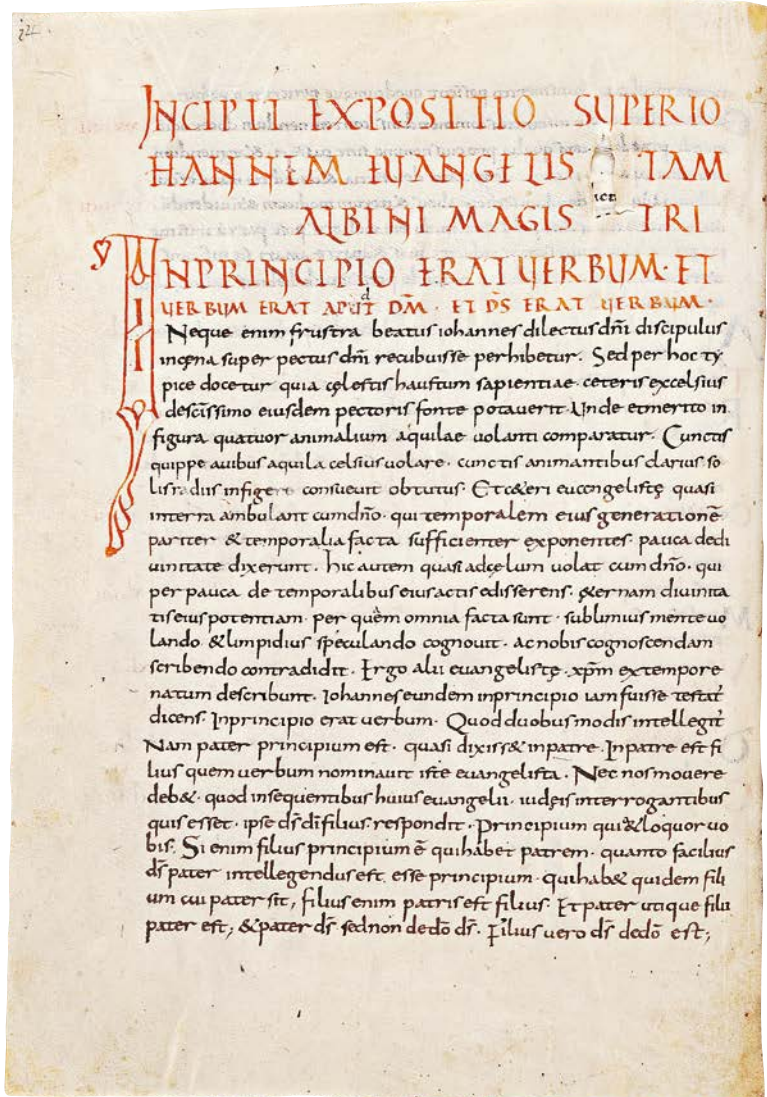 22
INCIPIT EXPOSITIO SUPERIO
HANNEM EUANGELIS TAM
ALBINI MAGIS TRI
INPRINCIPIO ERAT UERBUM· ET
UERBUM ERAT APUT DM̄ · ET DS̄ ERAT UERBUM·
Neque enim frustra beatus iohannes dilectus dn̄i discipulus
incęna super pectus dn̄i recubuisse perhibetur. Sed per hoc ty
pice docetur quia cęlestis haustum sapientiae ceteris excelsius
des̄cissimo eiusdem pectoris fonte potauerit· Unde etmerito in
figura quatuor animalium aquilae uolanti comparatur. Cunctis
quippe auibus aquila celsius uolare· cunctis animantibus clarius so
lis radiis infigere consueuit obtutus· Et c&eri euangelistę quasi
interra ambulant cumdn̄o· qui temporalem eius generationē
pariter & temporalia facta sufficienter exponentes· pauca dedi
uinitate dixerunt. hic autem quasi adcęlum uolat cum dn̄o· qui
per pauca de temporalibus eius actis edisserens· &ernam diuinita
tis eius potentiam· per quem omnia facta sunt· sublimius mente uo
lando &limpidius speculando cognouit· ac nobis cognoscendam
scribendo contradidit· Ergo alii euangelistę· xp̄m extempore
natum describunt· Iohannes eundem inprincipio iam fuisse testat̄
dicens· Inprincipio erat uerbum· Quod duobus modis intellegit̄
Nam pater principium est· quasi dixiss& inpatre· Inpatre est fi
lius quem uerbum nominauit iste euangelista· Nec nos mouere
deb&· quod insequentibus huius euangelii· iudęis interrogantibus
quis esset· ipse ds̄ dī filius respondit· Principium qui &loquor uo
bis· Si enim filius principium ē qui habet patrem· quanto facilius
ds̄ pater intellegendus est esse principium· qui hab& quidem fili
um cui pater sit; filius enim patris est filius· Et pater utique filii
pater est; &pater ds̄ sed non dedō ds̄· Filius uero ds̄ dedō est;